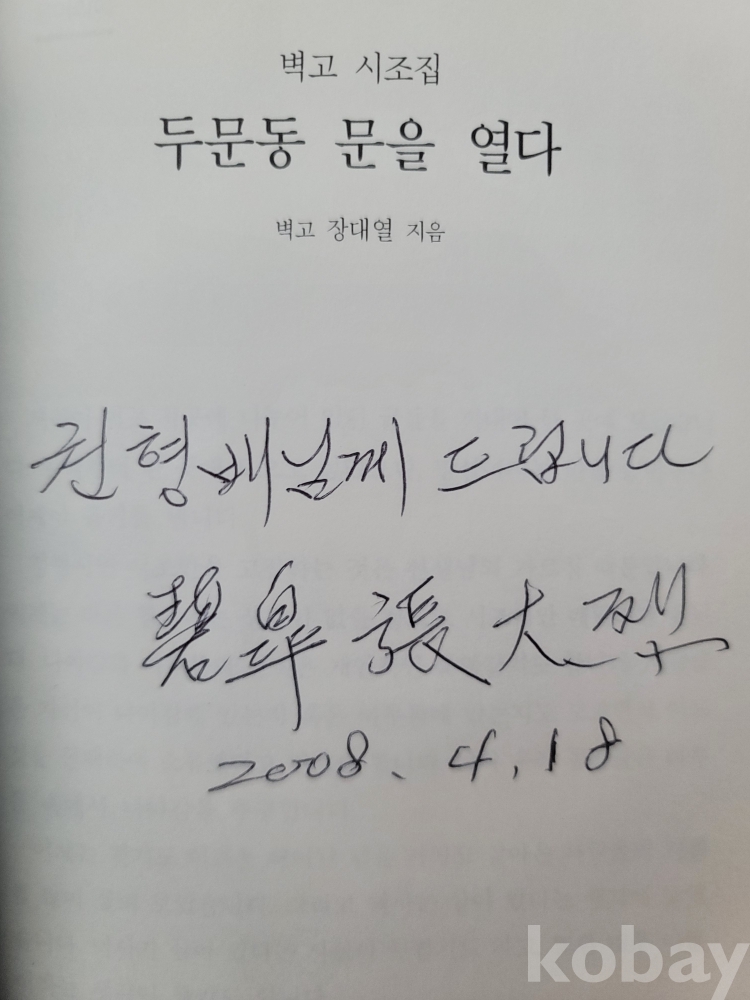 벽고 시조집
두문동 문을 열다
벽고 장대열 지음
권형배님께 드립니다
碧皐 張大烈
2008. 4. 18
kobay